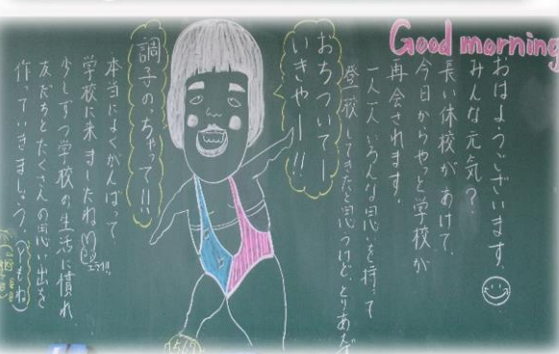 Good morning
おはようございます
みんな元気?
長い休校があけて、
今日からやっと学校が
再会されます。
一人一人、いろんな思いを持って
登校してきたと思うけど、とりあえず
おちついてー
いきやー!!
調子のっちゃって!!
本当によくがんばって、
学校に来ましたね
エライ!!
少しずつ学校の生活に慣れ、
友だちとたくさんの思い出を
作っていきましょう